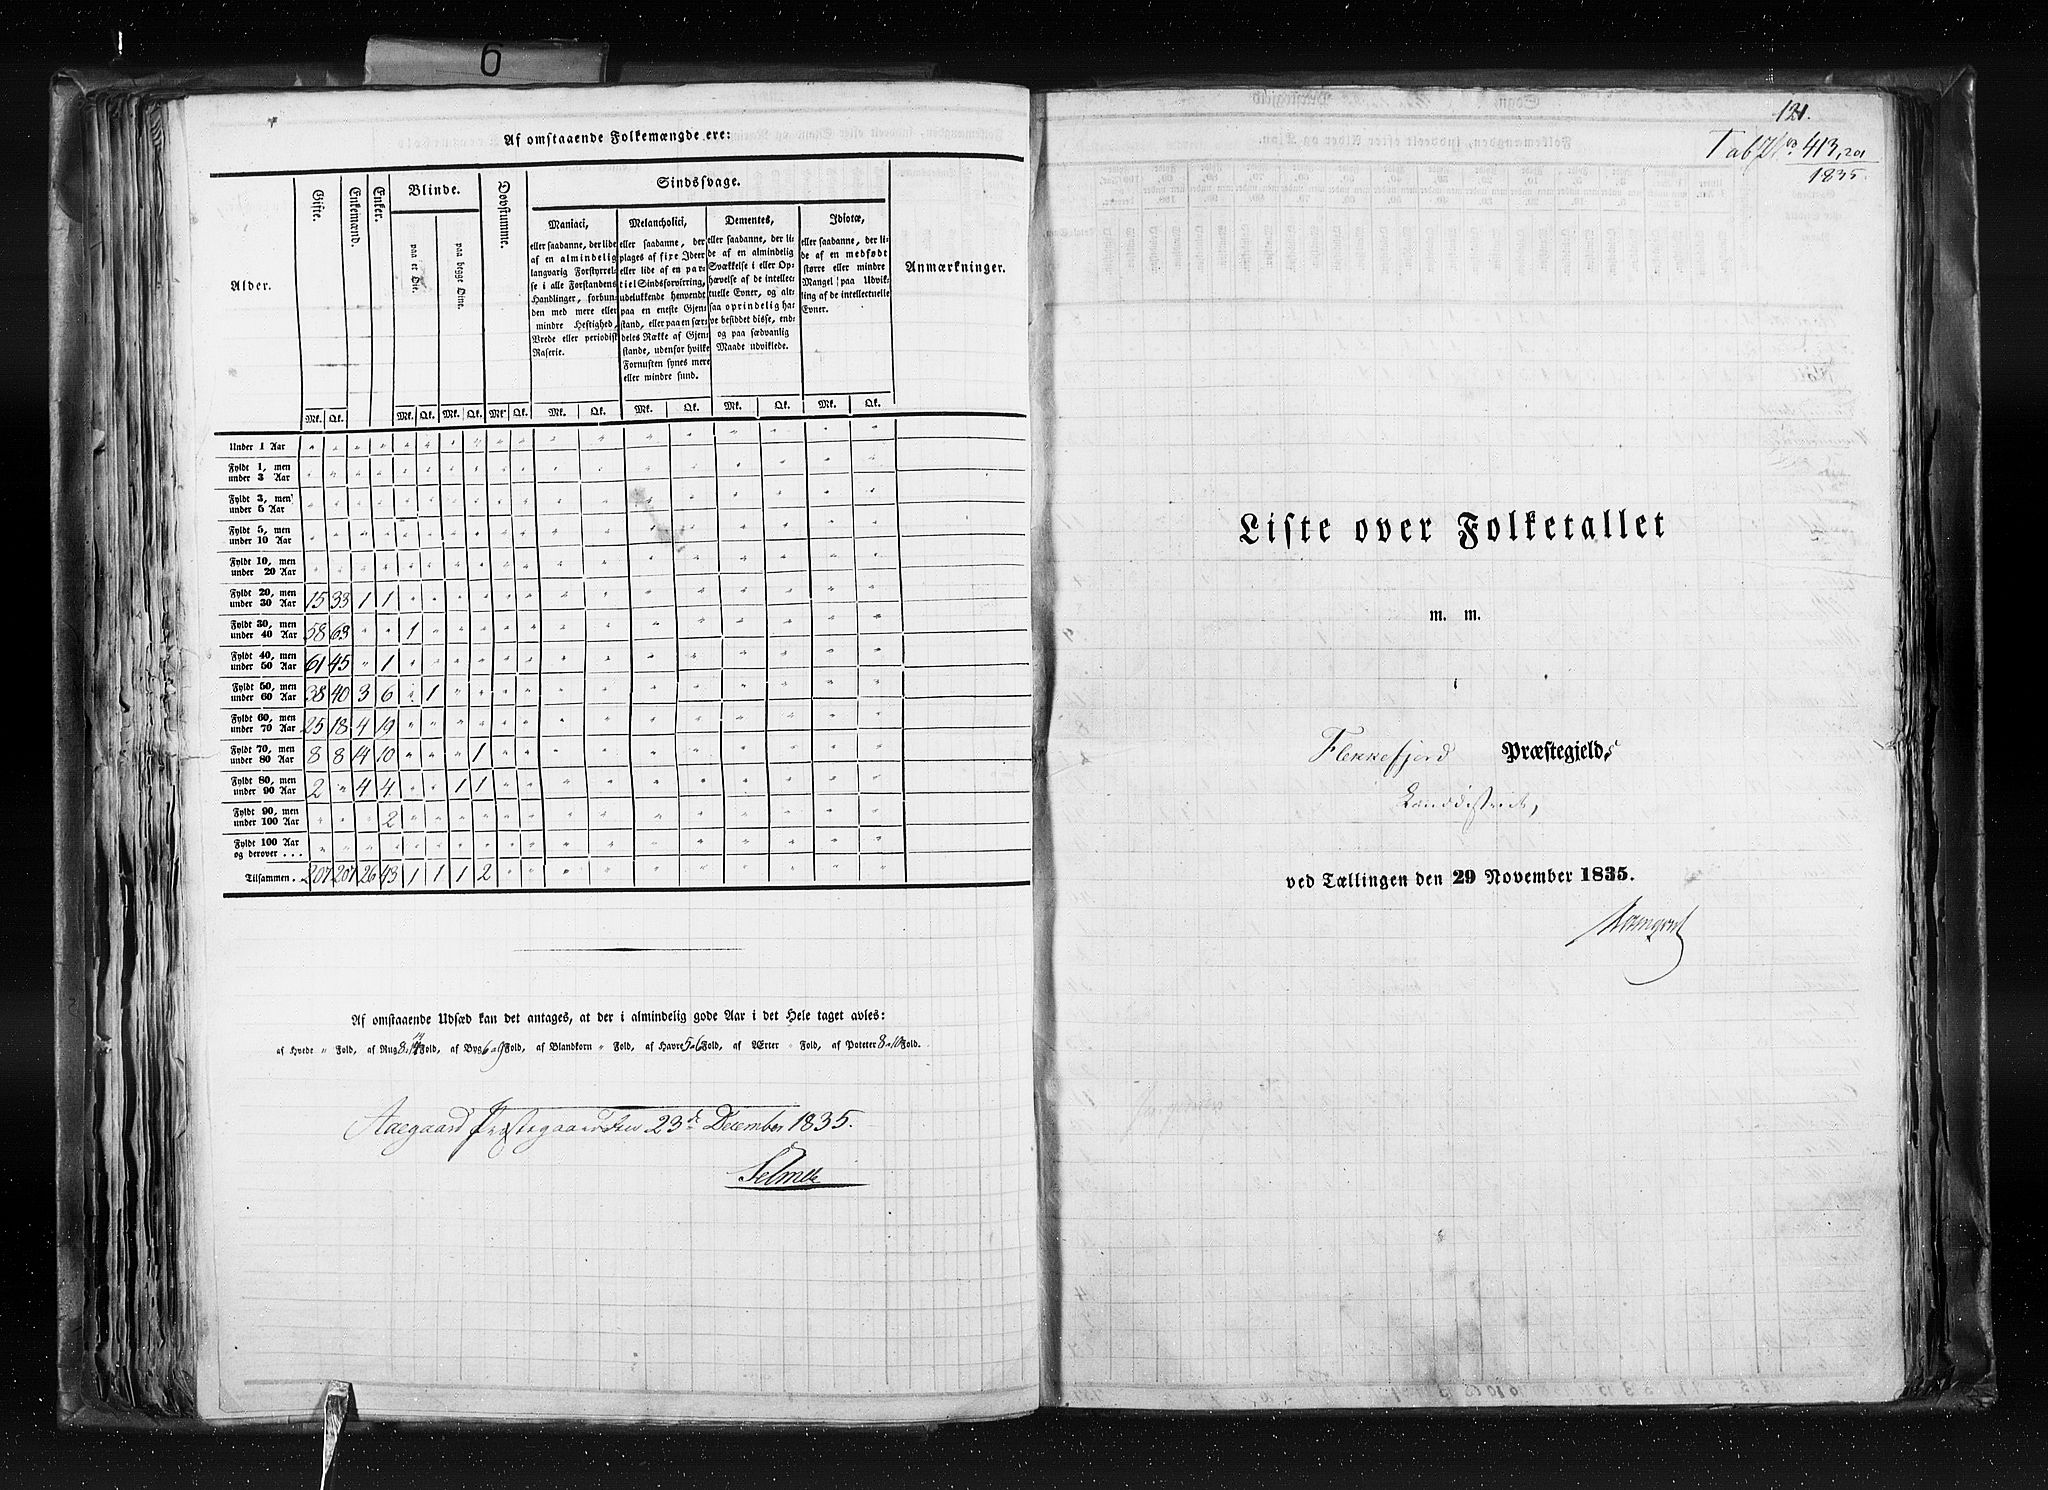 6
Af omstaaende Folkemængde ere:
Alder. Gifte. Enkemænd. Enker. Blinde. Døvstumme. Sindssvage. Anmærkninger.
paa et Øie. paa begge Øine.
Maniaci,
eller saadanne, der lide
af en almindelig
langvarig Forstyrrel-
se i alle Forstandens
Handlinger, forbun-
den med mere eller
mindre Heftighed,
Vrede eller periodisk
Raserie.
Melancholici,
eller saadanne, der
plages af fixe Ideer
eller lide af en par-
tiel Sindsforvirring,
udelukkende henvendt
paa en eneste Gjen-
stand, eller paa en sær-
deles Række af Gjen-
stande, udenfor hvilke
Fornuften synes mere
eller mindre sund.
Dementes,
eller saadanne, der li-
de af en almindelig
Svækkelse i eller Op-
hævelse af de intellec-
tuelle Evner, og alt-
saa oprindelig ha-
ve besiddet disse, end-
og paa sædvanlig
Maade udviklede.
Idiotæ,
eller saadanne, der li-
de af en medfødt
større eller mindre
Mangel paa Udvik-
ling af de intellectuelle
Evner.
Mk. Qk. Mk. Qk. Mk. Qk. Mk. Qk. Mk. Qk. Mk. Qk. Mk. Qk. Mk. Qk.
Under 1 Aar " " " " " " " " " " " " " " " " " "
Fyldt 1, men
under 3 Aar " " " " " " " " " " " " " " " " " "
Fyldt 3, men
under 5 Aar " " " " " " " " " " " " " " " " " "
Fyldt 5, men
under 10 Aar " " " " " " " " " " " " " " " " " "
Fyldt 10, men
under 20 Aar " " " " " " " " " " " " " " " " " "
Fyldt 20, men
under 30 Aar 15 33 1 1 " " " " " " " " " " " " " "
Fyldt 30, men
under 40 Aar 58 63 " " 1 " " " " " " " " " " " " "
Fyldt 40, men
under 50 Aar 61 45 " 1 " " " " " " " " " " " " " "
Fyldt 50, men
under 60 Aar 38 40 3 6 " 1 " " " " " " " " " " " "
Fyldt 60, men
under 70 Aar 25 18 4 19 " " " " " " " " " " " " " "
Fyldt 70, men
under 80 Aar 8 8 14 10 " " " 1 " " " " " " " " " "
Fyldt 80, men
under 90 Aar 2 " 4 4 " " 1 1 " " " " " " " " " "
Fyldt 90, men
under 100 Aar " " " 2 " " " " " " " " " " " " " "
Fyldt 100 Aar
og derover . . . " " " " " " " " " " " " " " " " " "
Tilsammen . 207 207 26 43 1 1 1 2 " " " " " " " " " "
Af omstaaende Udsæd kan det antages, at der i almindelig gode Aar i det Hele taget avles:
af Hvede " Fold, af Rug 8 Fold, af Byg 6 Fold, af Blandkorn " Fold, af Havre 5 a 6 Fold, af Ærter " Fold, af Poteter 8 a 10 Fold.
Aaegaard Præstegaard den 23d December 1835.
Selmer
121.
Tab No 413,201
1835.
Liste over Folketallet
m. m.
i
Flekkefjord Præstegjelds
Landdistrict,
ved Tællingen den 29 November 1835.